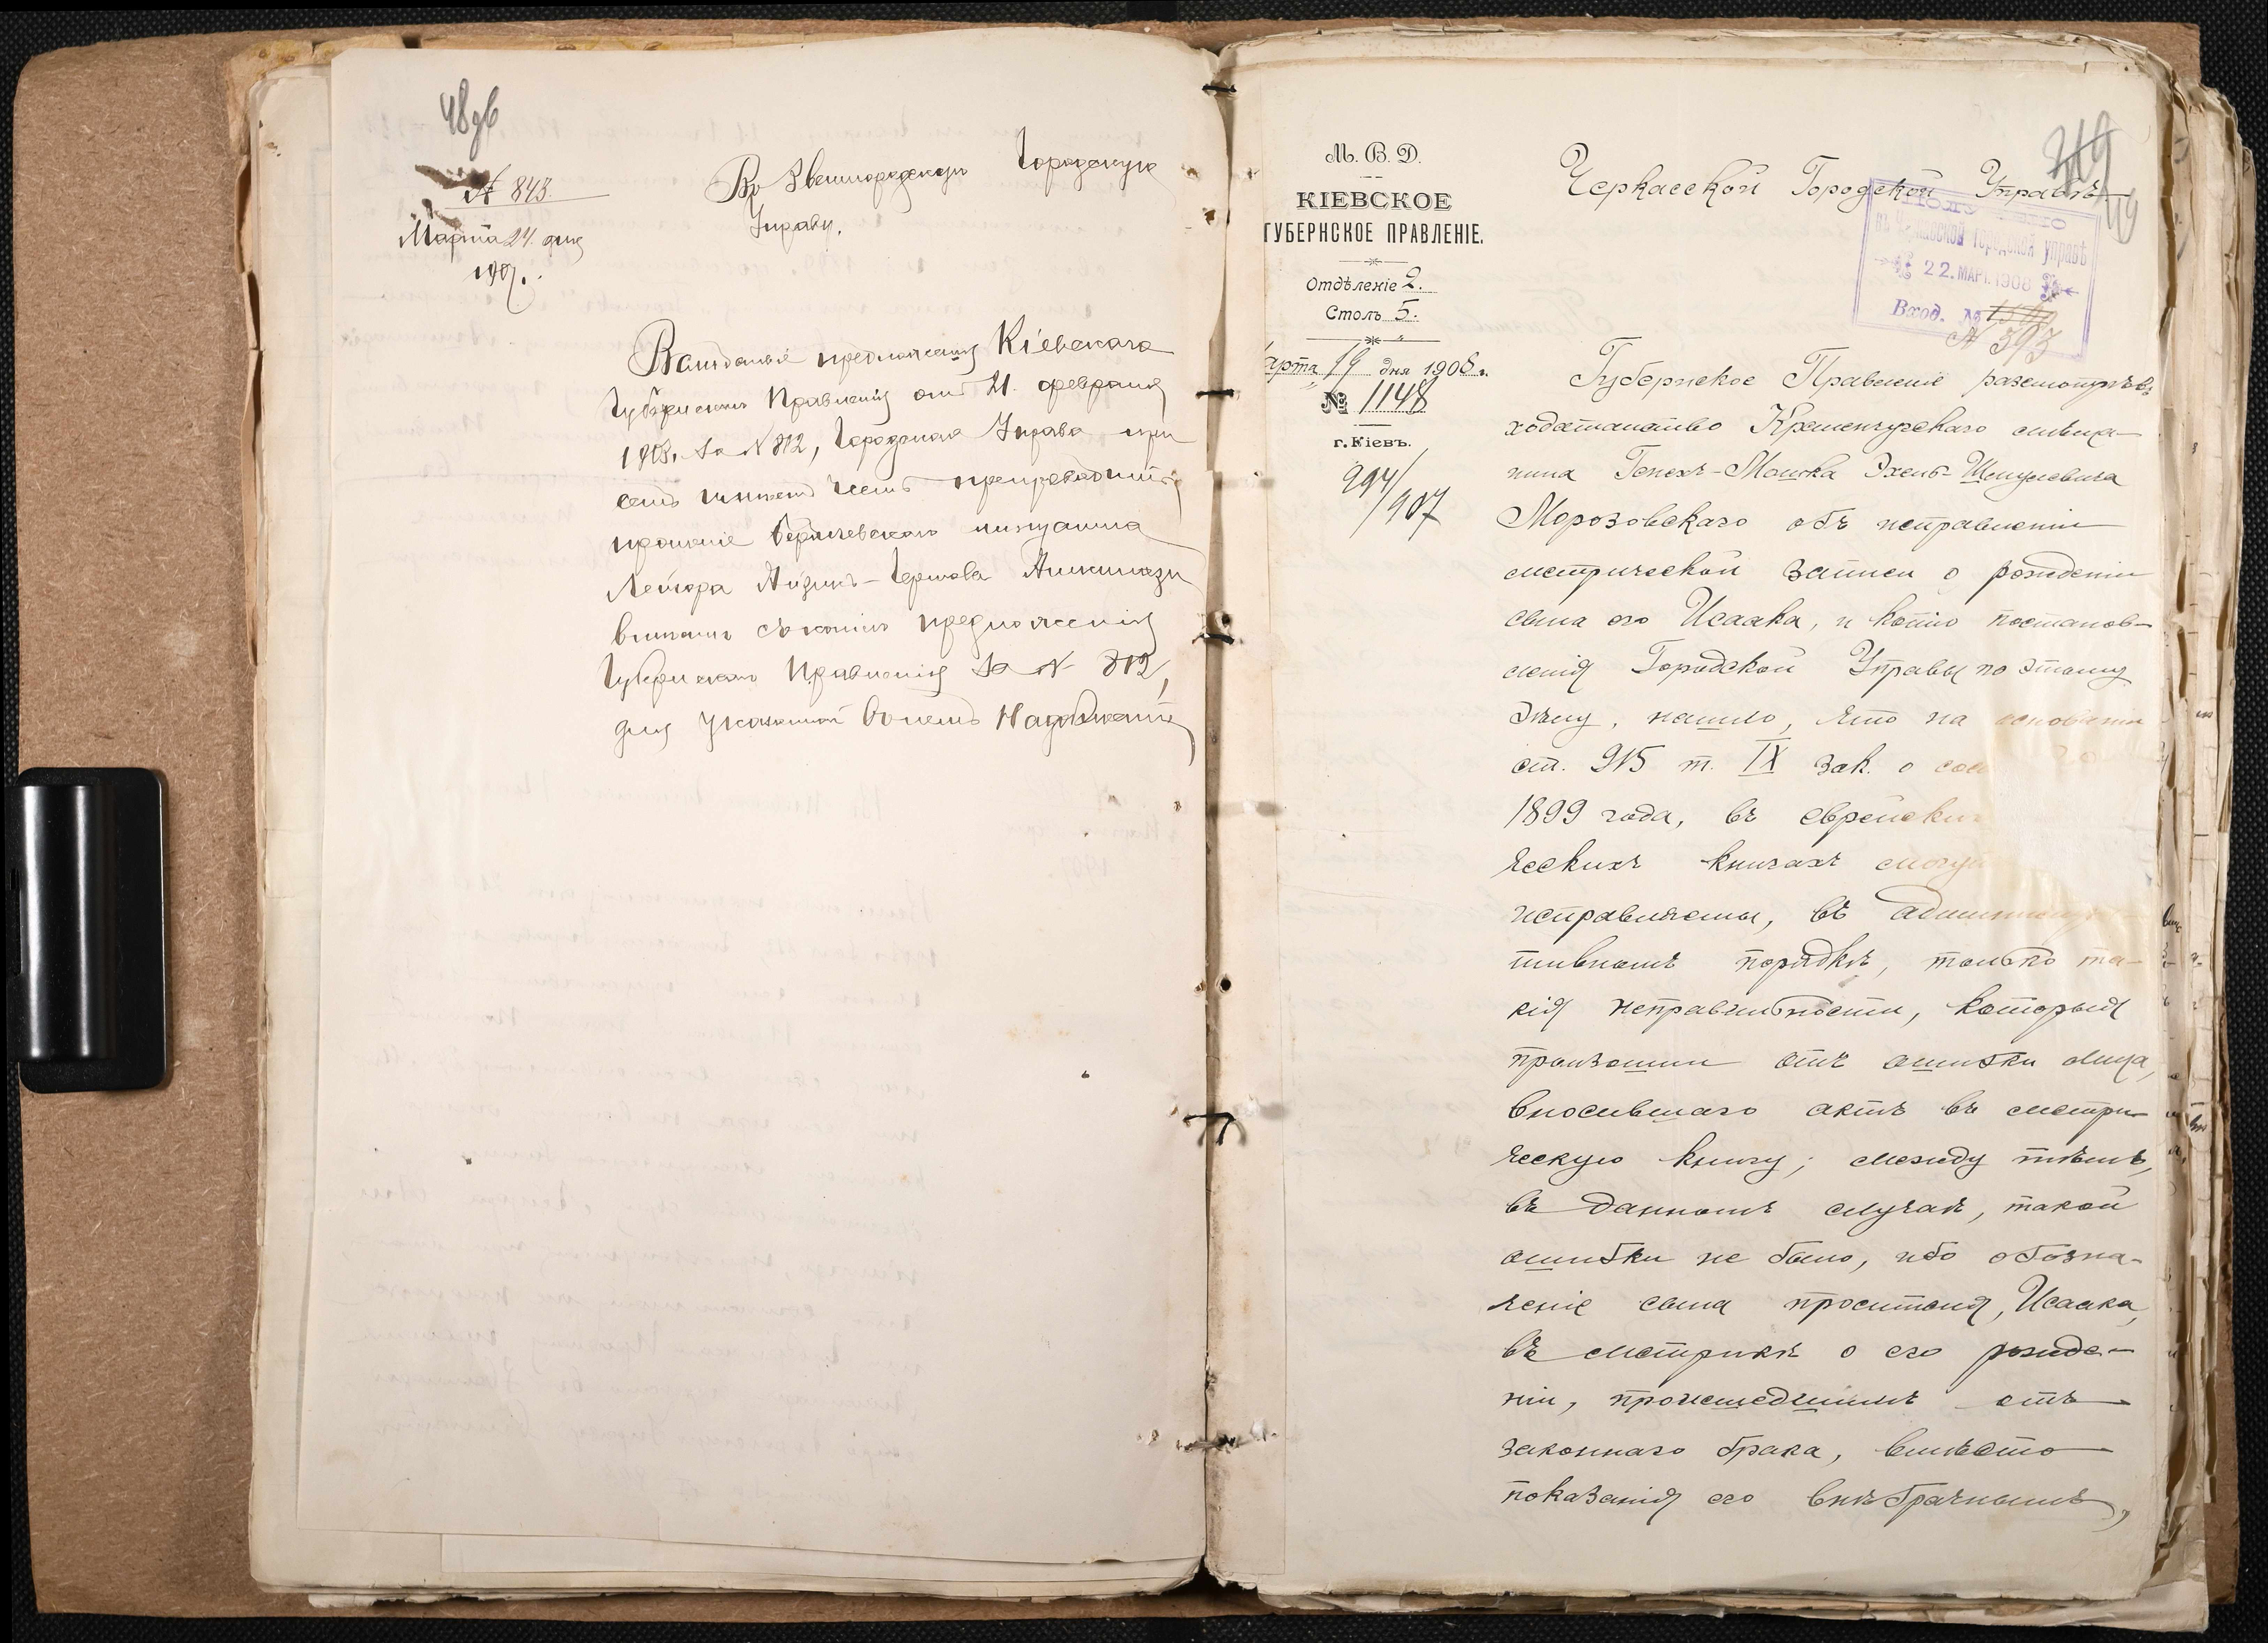 48 об
№ 843.
Марта 24 дня
190
Въ Звенигородскую Городскую
Управу.
предложенія Кіевскаго
Губернскаго Правленія отъ 21 февраля
1908, за № 812, Городская Управа при
семъ имѣетъ честь препроводить
прошеніе Бердичевскаго мѣщанина
Лейзора
съ копіей предложенія
Губернскаго Правленія за № 812,
для указанной въ немъ надобности
М. В. Д.
КІЕВСКОЕ
ГУБЕРНСКОЕ ПРАВЛЕНІЕ.
Отдѣленіе 2.
Столъ 5.
арта 19 дня 1908 г.
№ 1148
г. Кіевъ.
994/
/907
49
Черкасской Городской Управѣ
Городской управѣ
22. МАР. 1908
Вход. №
№ 393
Губернское Правленіе разсмотрѣвъ
ходатайство Кременчугскаго мѣща-
нина Генех-Мошка Эхель-Шмулевича
Морозовскаго объ исправленіи
метрической записи о рожденіи
сына его Исаака, и копію постанов-
ленія Городской Управы по этому
дѣлу, нашло, что на основаніи
ст. 915 т. IX Зак. о сос
1899 года, въ еврейских
ческихъ книгахъ могу
исправляемы, въ админист
тивномъ порядкѣ, только та-
кія неправильности, которыя
произошли отъ ошибки лица,
вносившаго актъ въ метри-
ческую книгу; между тѣмъ,
въ данномъ случаѣ, такой
ошибки не было, ибо обозна-
ченіе сына просителя, Исаака,
въ метрикѣ о его рожде-
ніи, происшедшимъ отъ
законнаго брака, вмѣсто
показанія его внѣбрачнымъ,